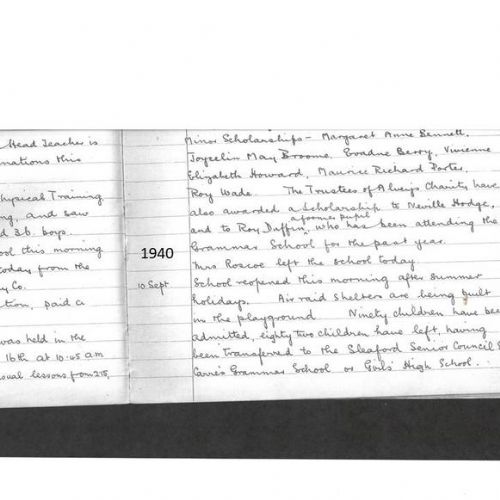 Head Teacher is
nations this
Physical Training
ng, and saw
d 3b. boys.
ool this morning
today from the
y Co.
tion, paid a
was held in the
16th at 10.45 am
usual lessons from 2.15,
Minor Scholarships - Margaret Anne Bennett,
Joycelin May Broome, Evadne Berry, Vivienne
Elizabeth Howard, Maurice Richard Porter,
Roy Wade. The Trustees of Alveys Charity have
also awarded a Scholarship to Neville Hodge,
a former pupil
and to Roy Duffin, who has been attending the
1940
Grammar School for the past year.
Mrs Roscoe left the School today
10 Sept
School reopened this morning after Summer
holidays. Air raid Shelters are being built
in the playground. Ninety children have been
admitted, eighty two children have left, having
been transferred to the Sleaford Senior Council
Carre's Grammar School or Girls' High School.